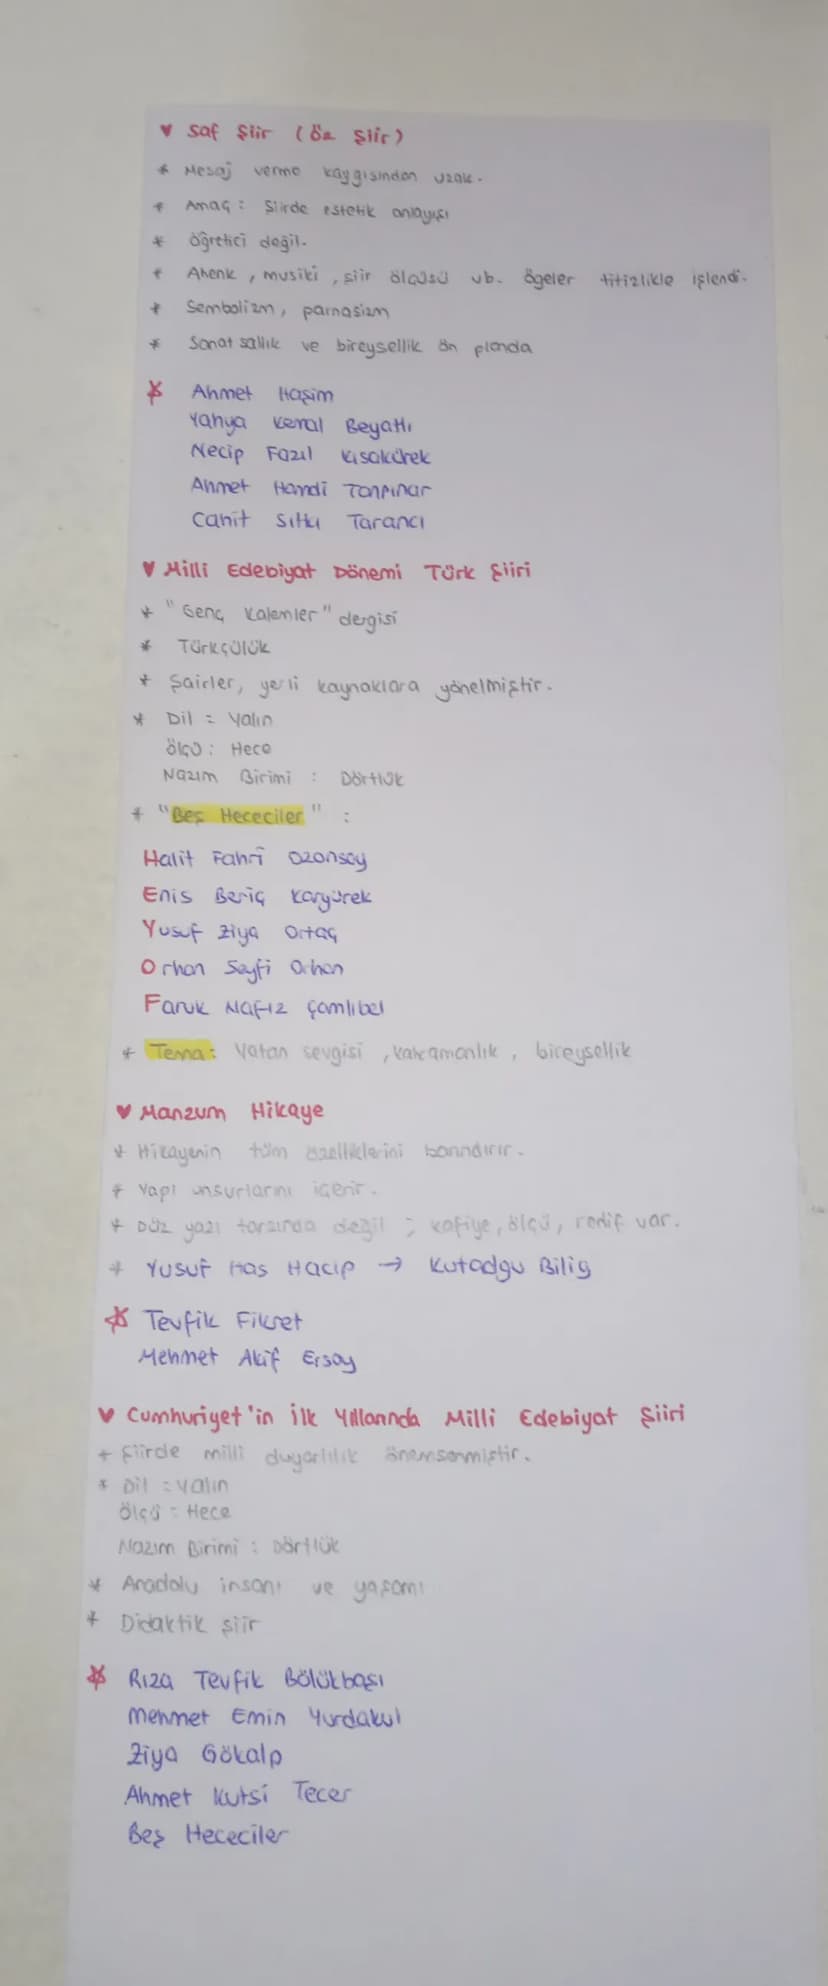 ♥ Saf Şiir (Öz Şiir)
* Mesaj verme kaygısından uzak.
* Amaç: Şiirde estetik anlayışı
* Öğretici değil.
* Ahenk, musiki, şiir ölçüsü vb. ögeler titizlikle işlendi.
* Sembolizm, parnasizm
* Sanatsallık ve bireysellik ön planda
* Ahmet Haşim
Yahya Kemal Beyatlı
Necip Fazıl Kısakürek
Ahmet Hamdi Tanpınar
Cahit Sıtkı Tarancı
♥ Milli Edebiyat Dönemi Türk Şiiri
* "Genç Kalemler" dergisi
* Türkçülük
* Şairler, yerli kaynaklara yönelmiştir.
* Dil = Yalın
Ölçü : Hece
Nazım Birimi : Dörtlük
* "Beş Hececiler" :
Halit Fahri Ozansoy
Enis Beriç Koryürek
Yusuf Ziya Ortaç
Orhan Seyfi Orhon
Faruk Nafız Çamlıbel
* Tema: Vatan sevgisi, kahramanlık, bireysellik
♥ Manzum Hikaye
* Hikayenin tüm özelliklerini barındırır.
* Yapı unsurlarını içerir.
* Düz yazı tarzında değil ; kafiye, ölçü, redif var.
* Yusuf Has Hacip → Kutadgu Bilig
* Tevfik Fikret
Mehmet Akif Ersoy
♥ Cumhuriyet'in İlk Yıllarında Milli Edebiyat Şiiri
* Şiirde milli duyarlılık önemsenmiştir.
* Dil = Yalın
Ölçü = Hece
Nazım Birimi : Dörtlük
* Anadolu insanı ve yaşamı
* Didaktik şiir
* Rıza Tevfik Bölükbaşı
Mehmet Emin Yurdakul
Ziya Gökalp
Ahmet Kutsi Tecer
Beş Hececiler